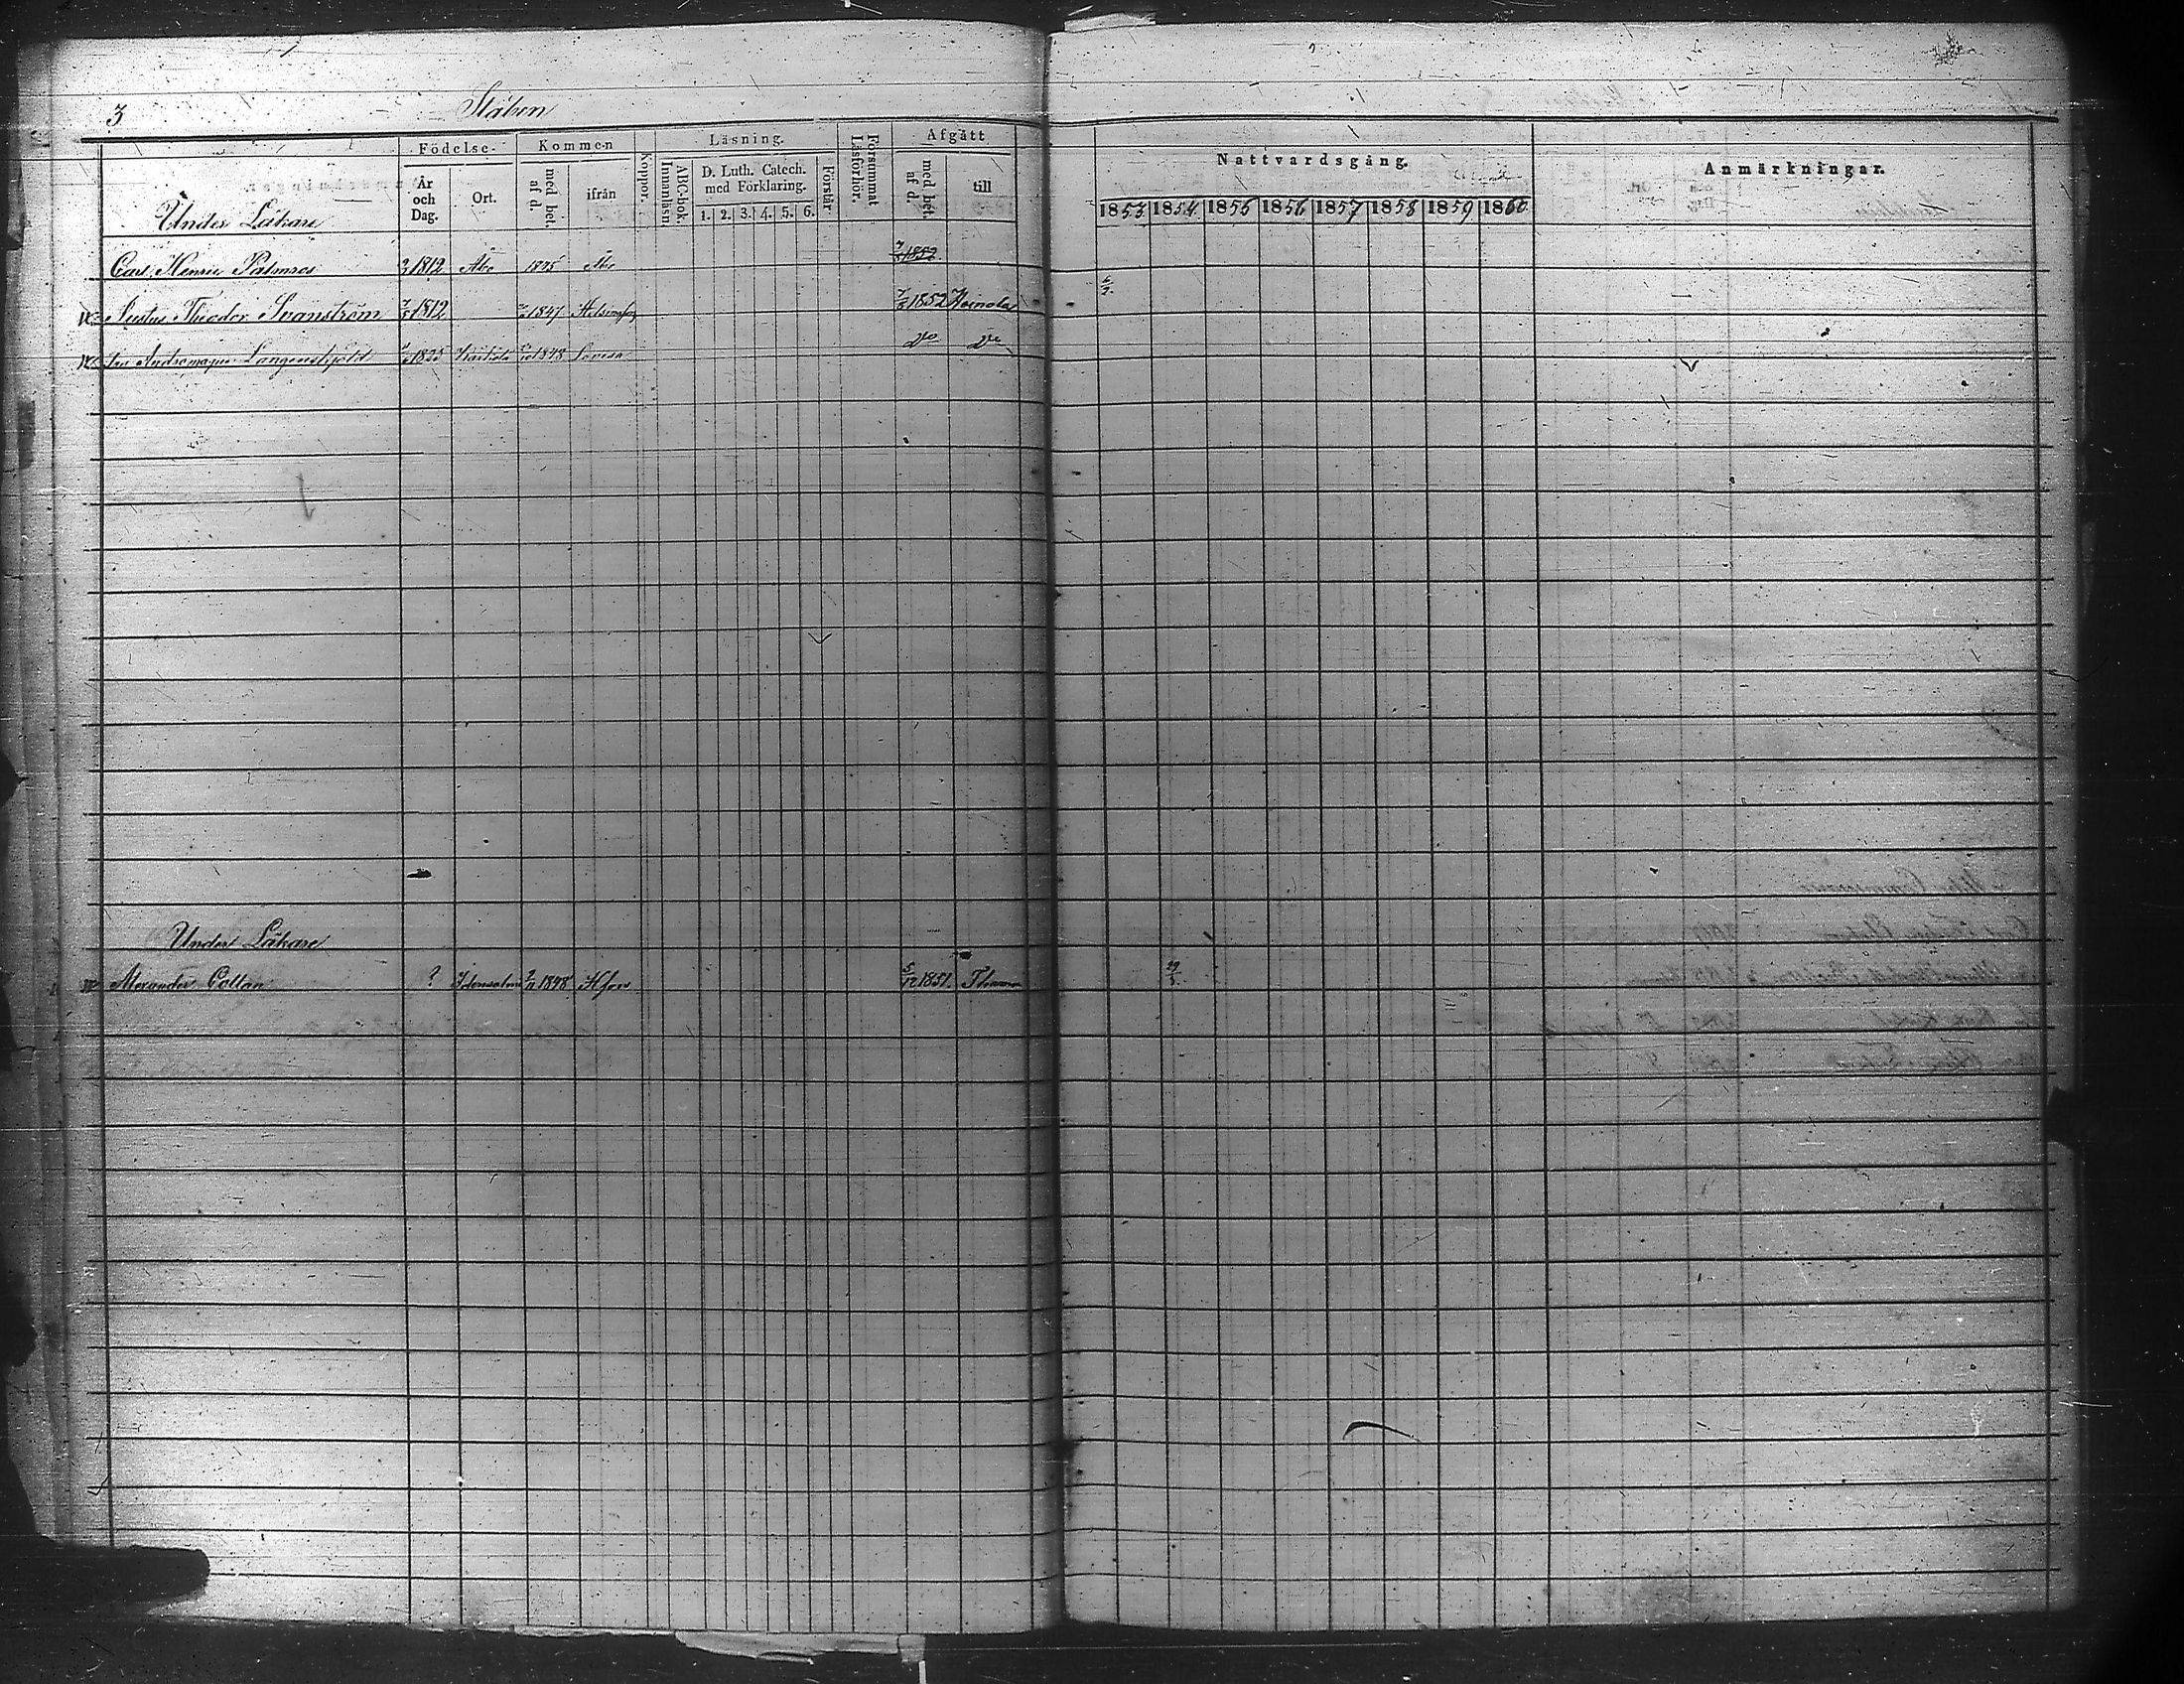 3 Staben
Födelse. Kommen Läsning. Afgått
År och Dag. Ort. med bet. af d. ifrån Koppor. ABC-bok. Innanläsn D. Luth. Catech. med Förklaring. 1. 2. 3. 4. 5. 6. Förstår Försummat Läsförhör. med bet. af d. till
Nattvardsgång. Anmärkningar.
1853 1854 1855 1856 1857 1858 1859 1860
Under Läkare
Carl Henric Palmros 1812 Åbo 1845 Åbo 1852
Justus Theodor Svanström 1812 1847 Helsingfors 1852 Heinola
Andromaque Langenskjöld 1825 1848 Lovisa do do
Under Läkare
Alexander Collan ? Idensalmi 1848 Hfors 5/12 1851